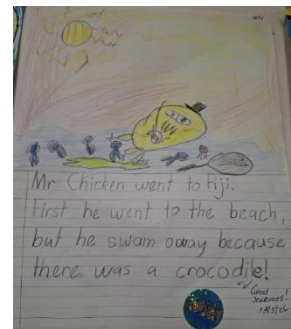 Mr Chicken went to Fiji.
First he went to the beach,
but he swam away because
there was a crocodile!
Great
sentences!